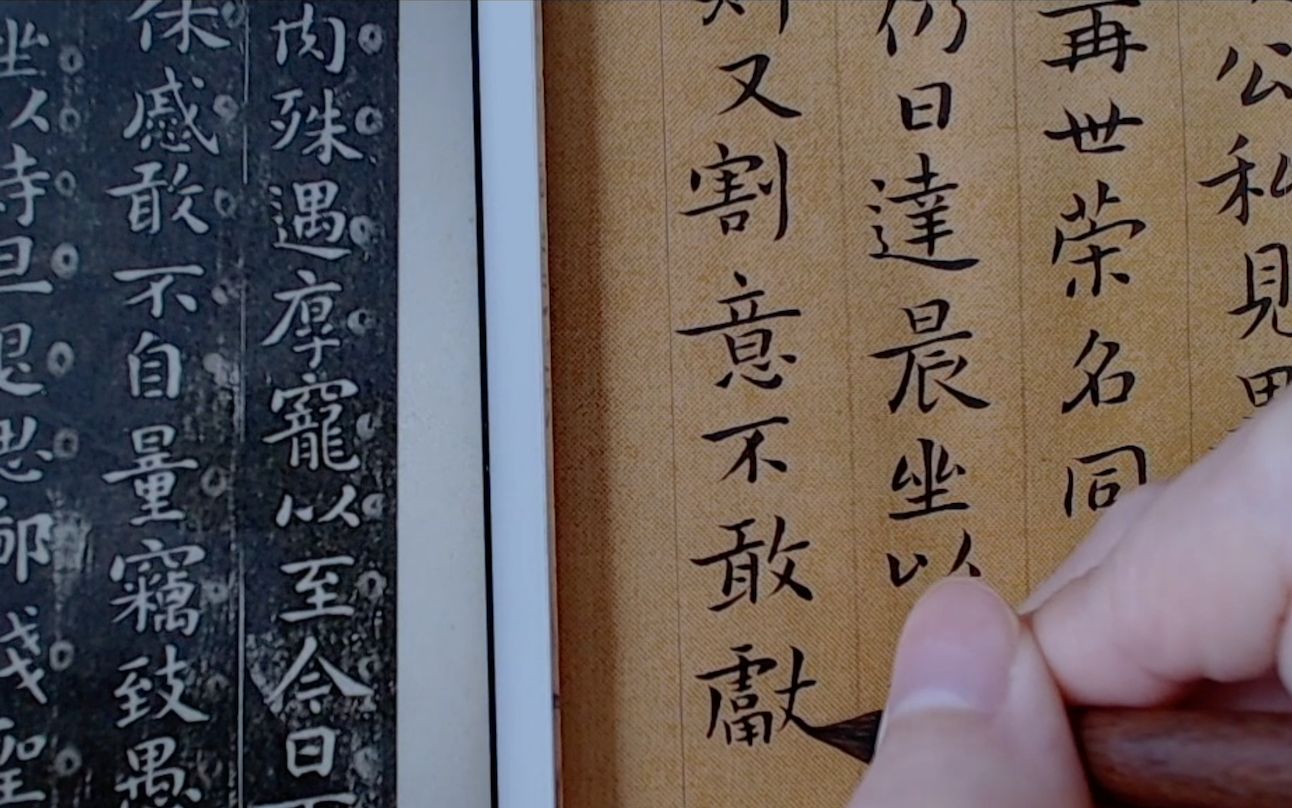 公私見
再世荣名同
仍日達晨坐以
則又割意不敢獻
肉殊遇厚寵以至今日
休慼敢不自量竊致愚
坐以待旦退思鄙淺聖